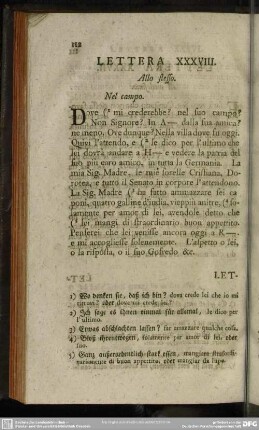 112
LETTERA XXXVIII.
Allo stesso.
Nel campo.
Dove (¹ mi crederebbe? nel suo campo?
Non Signore? In A— dalla sua amica?
ne meno, Ove dunque? Nella villa dove fu oggi.
Quivi l'attendo, e (² le dico per l'ultimo che
lei dovrà andare a H— e vedere la patria del
suo più caro amico, in tutta la Germania. La
mia Sig. Madre, le mie sorelle Cristiana, Do-
rotea, e tutto il Senato in corpore l'attendono.
La Sig. Madre (³ ha fatto ammazzare sei ca-
poni, quatro galline d'india,
lamente per amor di lei, avendole detto che
(⁵ lei mangi di straordinario buon appetito.
Penserei che lei venisse ancora oggi a R—
e mi accogliesse solennemente. L'aspetto o lei,
o la risposta, o il suo Gofredo &c.
LET-
1) Wo denken sie, daß ich bin? dove crede lei che io mi
2) Ich sage es ihnen einmal für allemal, le dico per
l'ultimo.
3) Etwas abschlachten lassen? far ammazzare qualche cosa.
4) Bloß ihrentwegen, solamente per amor di lei, ober
5) Ganz außerordentlich stark essen, mangiare straordi-
nariamente di buon appetito, ober mangiar da lupo.